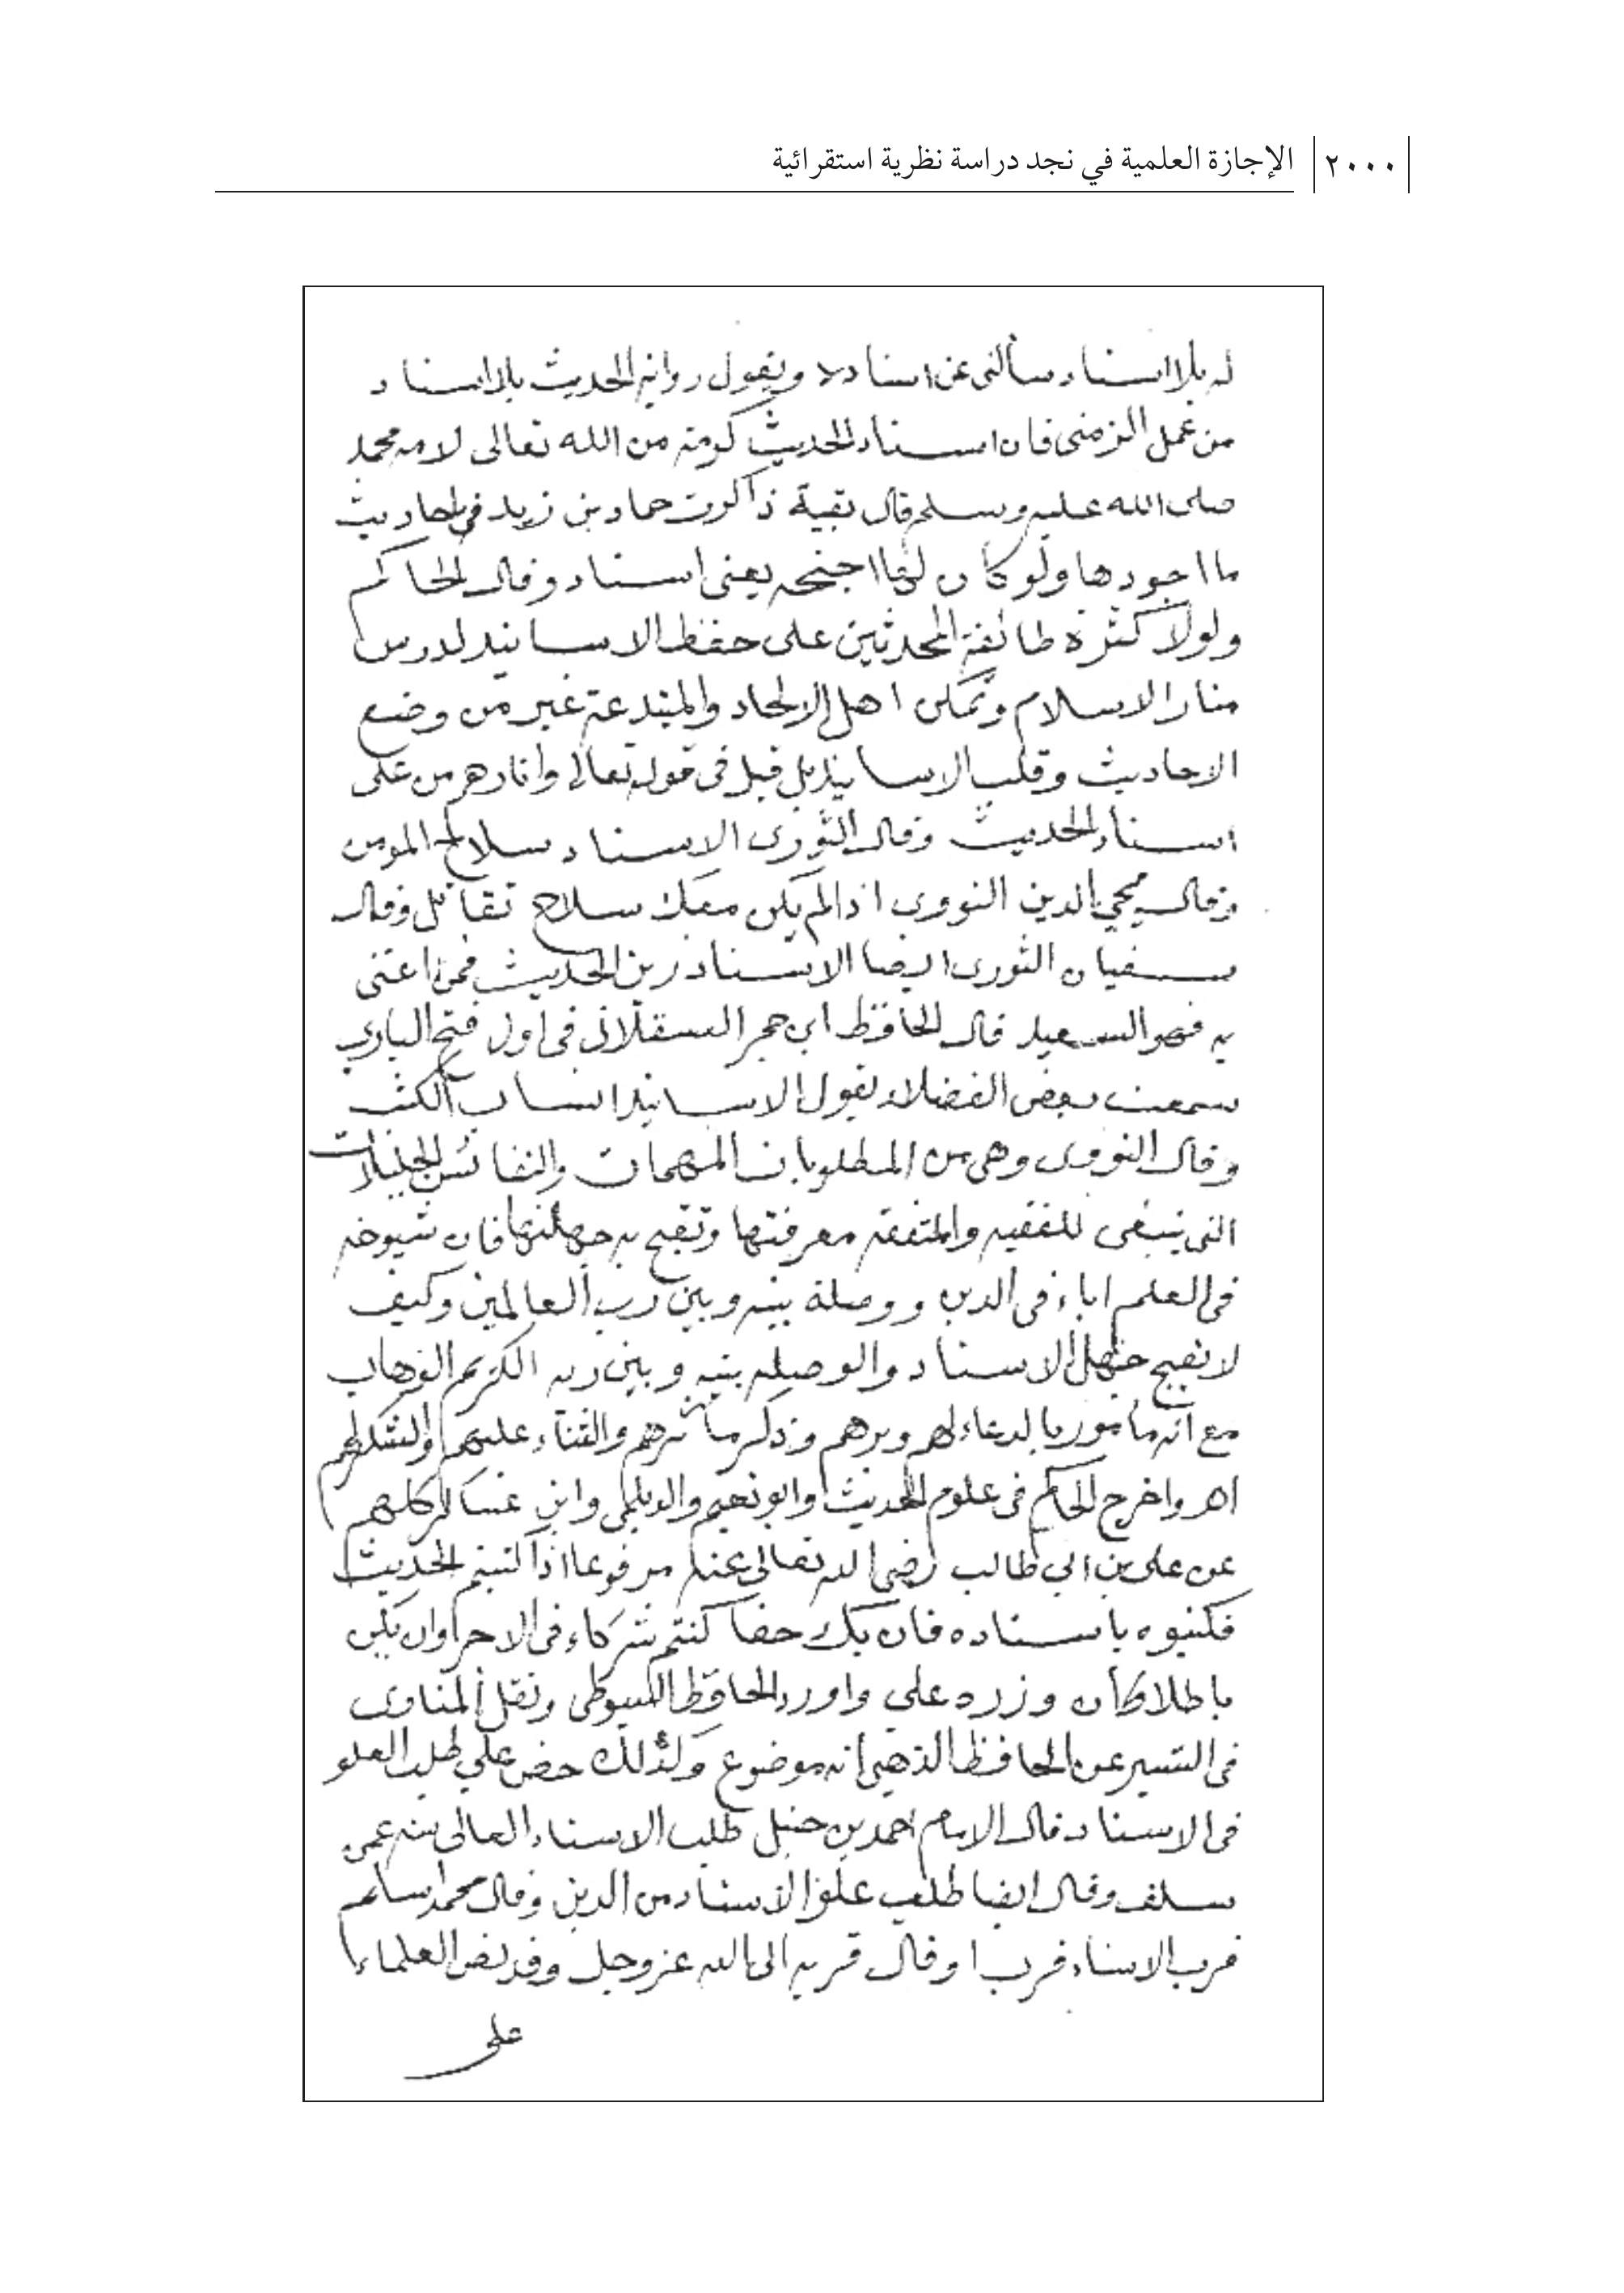 ٢٠٠٠ الإجازة العلمية في نجد دراسة نظرية استقرائية
له بلا اسناد سألني عن اسناده ويقول رواية الحديث بلا اسناد
من عمل الزمنى فان اسناد الحديث كرمة من الله تعالى لامة محمد
صلى الله عليه وسلم قال بقية ذاكرت حماد بن زيد في احاديث
ما اجودها ولو كان لها اجنحة يعني اسناد وقال الحاكم
ولولا كثرة طائفة المحدثين على حفظ الاسانيد لدرس
منار الاسلام وتمكن اهل الالحاد والمبتدعة غير من وضع
الاحاديث وقلب الاسانيد بل قيل في قوله تعالى واثارهم من على
اسناد الحديث وقال الثوري الاسناد سلاح المومن
وقال محيي الدين النووي اذا لم يكن معك سلاح تقاتل وقال
سفيان الثوري ايضا الاسناد زين الحديث فمن اعتنى
به فهو السعيد قال الحافظ ابن حجر العسقلاني في اول فتح الباري
سمعت بعض الفضلاء يقول الاسانيد انساب الكتب
وقال النووي وهي من المطلوبات المهمات والنفائس الجليلات
التي ينبغي للفقيه والمتفقه معرفتها وتقبح به جهالتها فان شيوخه
في العلم اباء في الدين ووصلة بينه وبين رب العالمين وكيف
لا تقبح جهل الاسناد والوصلة بينه وبين ربه الكريم الوهاب
مع انه مامور بالدعاء لهم وبرهم وذكر مآثرهم والثناء عليهم والشكر لهم
اهـ واخرج الحاكم في علوم الحديث وابو نعيم والديلمي وابن عساكر كلهم
عن على بن ابي طالب رضي الله تعالى عنه مرفوعا اذا كتبتم الحديث
فكتبوه باسناده فان يك حقا كنتم شركاء في الاجر وان يكن
باطلا كان وزره على واورد الحافظ السيوطي ونقل المناوي
في التيسير عن الحافظ الذهبي انه موضوع ولذلك حض على طلب العلو
في الاسناد قال الامام احمد بن حنبل طلب الاسناد العالي سنه عمن
سلف وقال ايضا طلب علو الاسناد من الدين وقال محمد اسلم
قرب الاسناد قرب او قال قربه الى الله عز وجل وقد نص العلماء
على